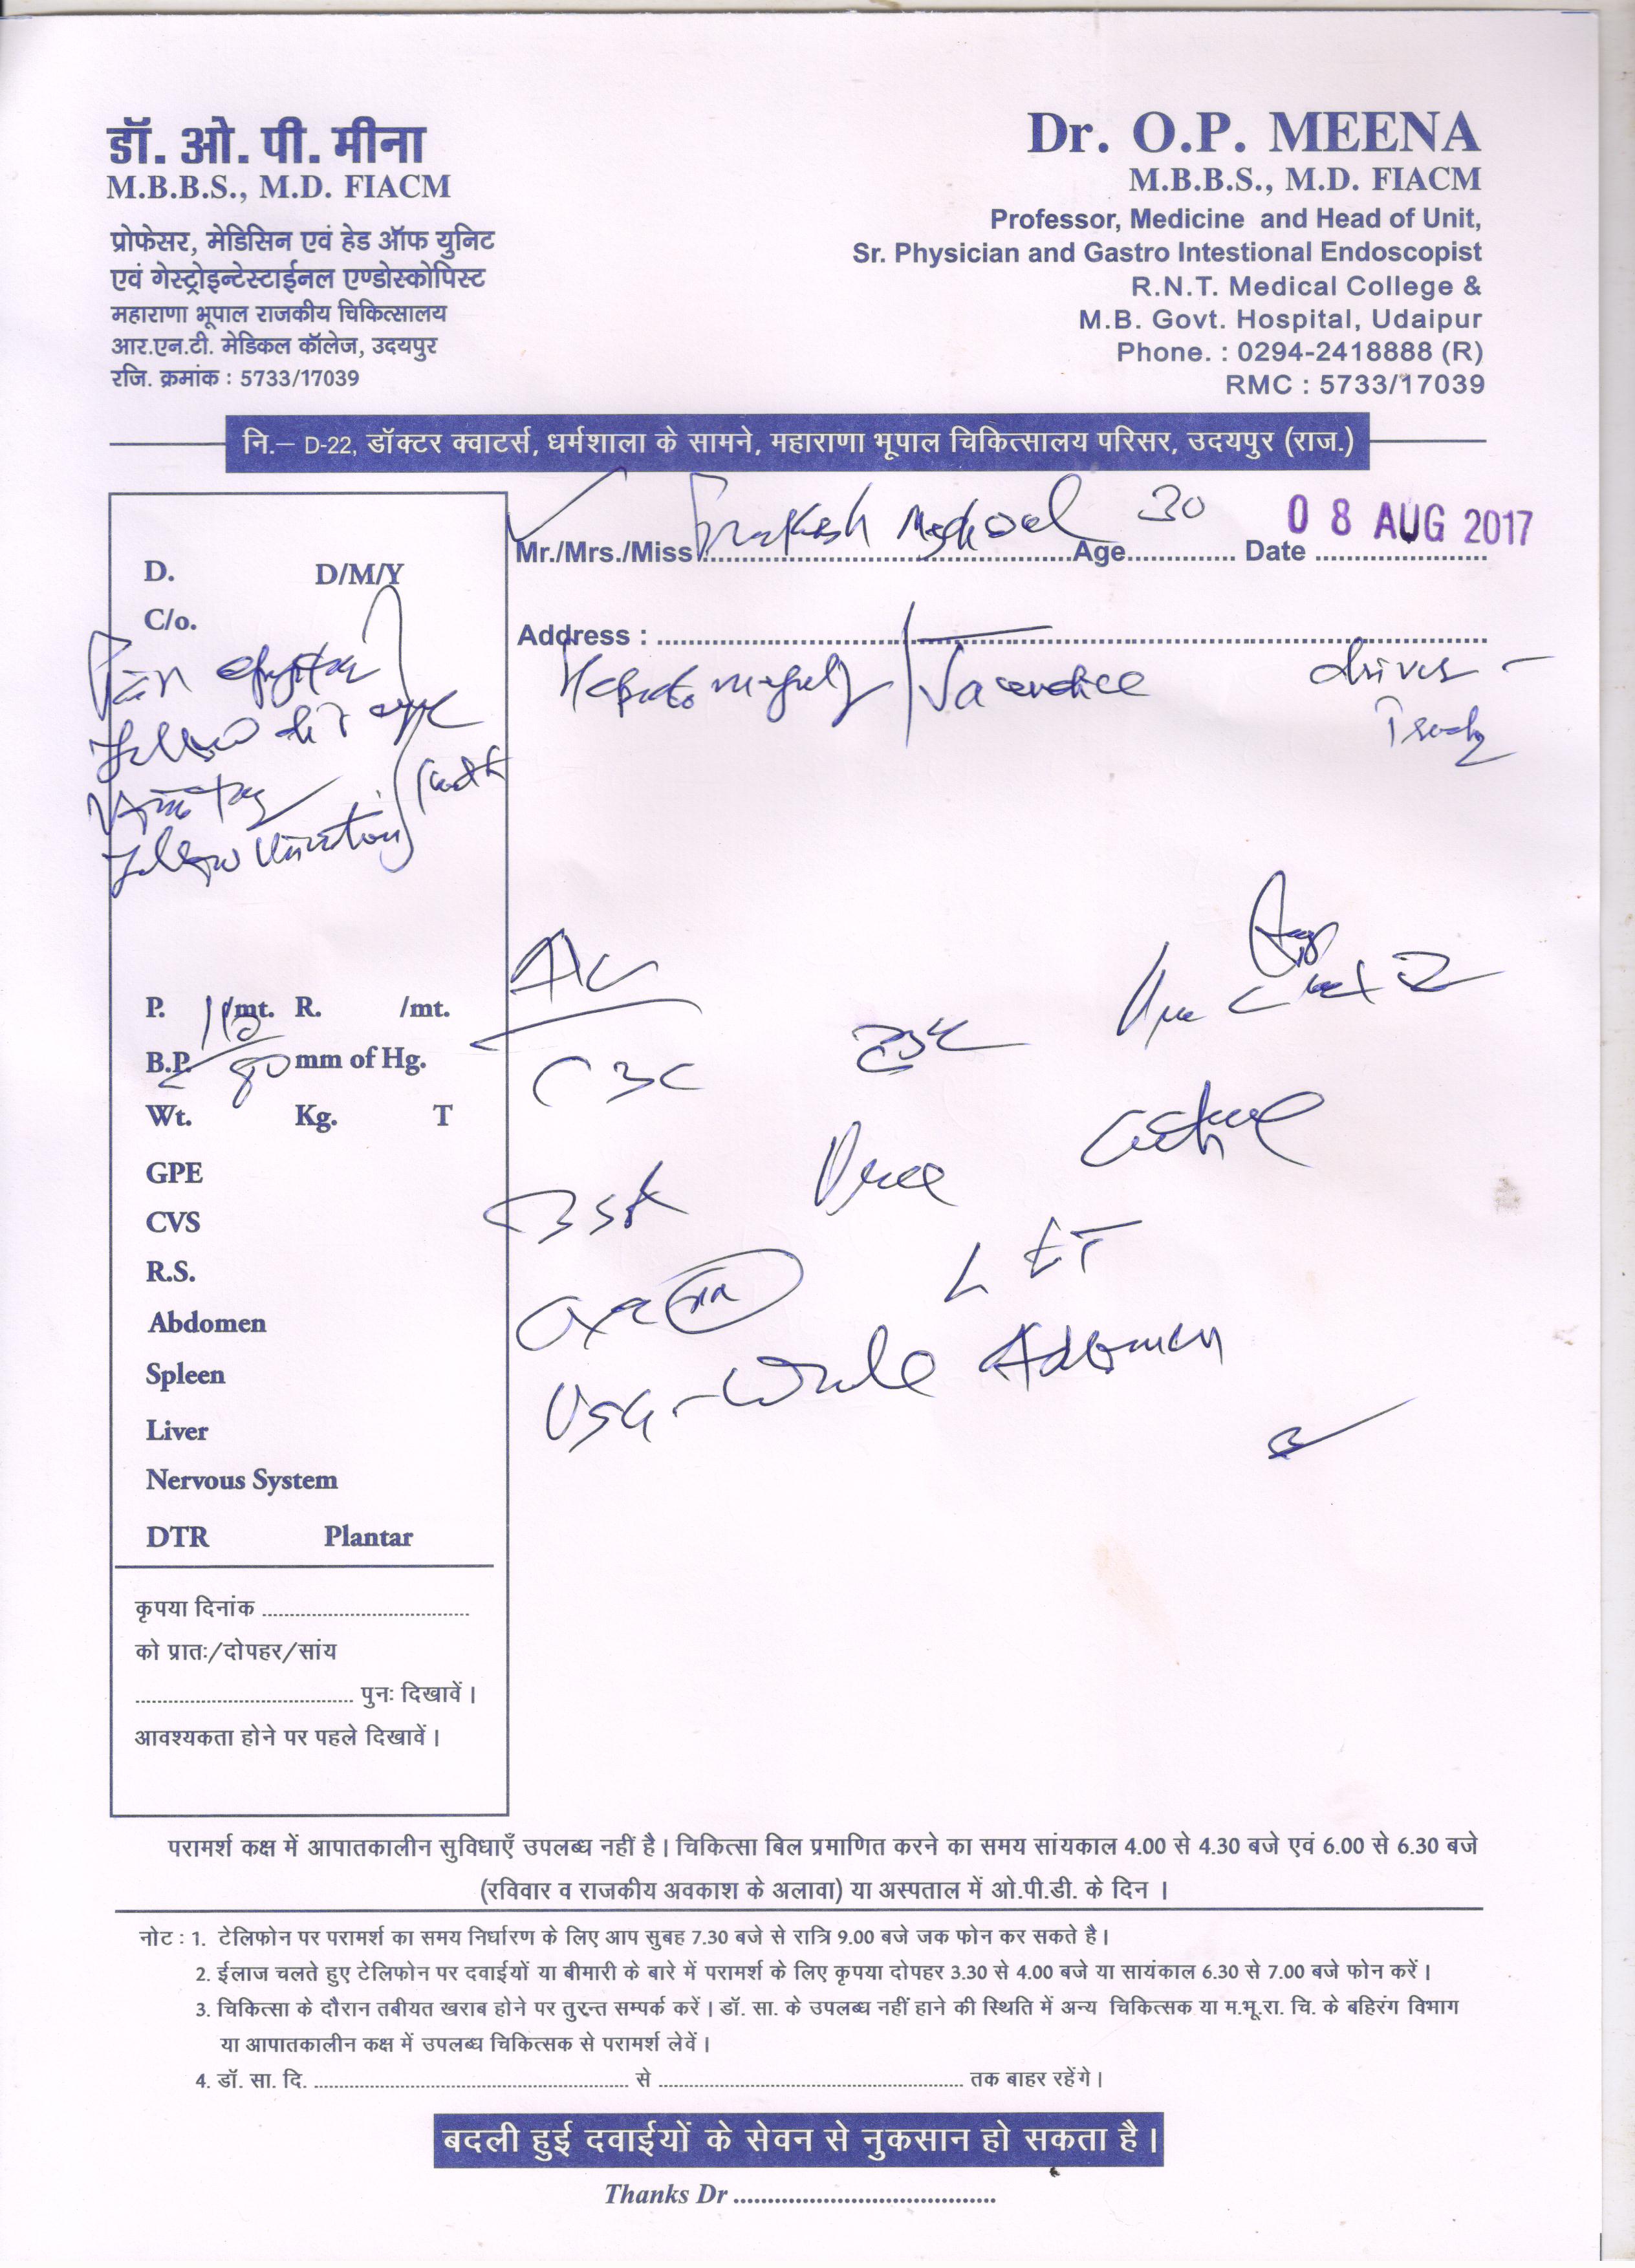 डॉ. ओ. पी. मीना
M.B.B.S., M.D. FIACM
प्रोफेसर, मेडिसिन एवं हेड ऑफ युनिट
एवं गेस्ट्रोइन्टेस्टाईनल एण्डोस्कोपिस्ट
महाराणा भूपाल राजकीय चिकित्सालय
आर.एन.टी. मेडिकल कॉलेज, उदयपुर
रजि. क्रमांक : 5733/17039
Dr. O.P. MEENA
M.B.B.S., M.D. FIACM
Professor, Medicine and Head of Unit,
Sr. Physician and Gastro Intestional Endoscopist
R.N.T. Medical College &
M.B. Govt. Hospital, Udaipur
Phone. : 0294-2418888 (R)
RMC : 5733/17039
नि.– D-22, डॉक्टर क्वाटर्स, धर्मशाला के सामने, महाराणा भूपाल चिकित्सालय परिसर, उदयपुर (राज.)
Mr./Mrs./Miss Prakash Age 30 Date 08 AUG 2017
Address :
Hepatomegaly / Jaundice
D. D/M/Y
C/o.
Pain
Yellow
Yellow
P. /mt. R. /mt.
B.P. 110/80 mm of Hg.
Wt. Kg. T
GPE
CVS
R.S.
Abdomen
Spleen
Liver
Nervous System
DTR Plantar
CBC
Urea
LFT
USG - Whole Abdomen
कृपया दिनांक ....................
को प्रातः/दोपहर/सांय
.................... पुनः दिखावें।
आवश्यकता होने पर पहले दिखावें।
परामर्श कक्ष में आपातकालीन सुविधाएँ उपलब्ध नहीं है। चिकित्सा बिल प्रमाणित करने का समय सांयकाल 4.00 से 4.30 बजे एवं 6.00 से 6.30 बजे
(रविवार व राजकीय अवकाश के अलावा) या अस्पताल में ओ.पी.डी. के दिन ।
नोट : 1. टेलिफोन पर परामर्श का समय निर्धारण के लिए आप सुबह 7.30 बजे से रात्रि 9.00 बजे जक फोन कर सकते है।
2. ईलाज चलते हुए टेलिफोन पर दवाईयों या बीमारी के बारे में परामर्श के लिए कृपया दोपहर 3.30 से 4.00 बजे या सायंकाल 6.30 से 7.00 बजे फोन करें।
3. चिकित्सा के दौरान तबीयत खराब होने पर तुरन्त सम्पर्क करें। डॉ. सा. के उपलब्ध नहीं हाने की स्थिति में अन्य चिकित्सक या म.भू.रा. चि. के बहिरंग विभाग
या आपातकालीन कक्ष में उपलब्ध चिकित्सक से परामर्श लेवें।
4. डॉ. सा. दि. .................... से .................... तक बाहर रहेंगे।
बदली हुई दवाईयों के सेवन से नुकसान हो सकता है।
Thanks Dr ....................